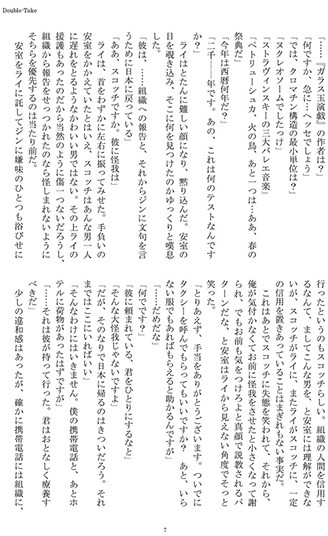 Double-Take
「……『ガラス玉演戯』の作者は？」
「何ですか、急に…ヘッセでしょう」
「では、クロマチン構造の最小単位は？」
「ヌクレオソームでしたっけ」
「ストラヴィンスキーの三大バレエ音楽」
「ペトリューシュカ、火の鳥、あと一つは……ああ、春の
祭典だ」
「今年は西暦何年だ？」
「二〇一一年です。あの、これは何のテストなんです
か？」
ライはとたんに難しい顔になり、黙り込んだ。安室の
目を覗き込み、そこに何を見つけたのかゆっくりと嘆息
した。
「彼は、……組織への報告と、それからジンに文句を言
うために日本に戻っている」
「ああ、スコッチですか。彼に怪我は」
ライは、首をわずかに左右に振ってみせた。手負いの
安室をかかえていたとはいえ、スコッチはあんな男一人
に遅れをとるようなかわいい男ではない。その上ライの
援護もあったのだから当然のように傷一つないだろうし、
組織から報告をせっつかれたのなら怪しまれないように
そちらを優先するのは当たり前だ。
安室をライに託してジンに嫌味のひとつも浴びせに
行ったというのもスコッチらしい。組織の人間を信用す
るなんて、ましてこんな男を、と安室には理解ができな
いが、スコッチがライに、またライがスコッチに、一定
の信用を置きあっていることはまぎれもない事実だ。
これはあとでスコッチに失態を笑われて、それから、
俺が気付かなくてお前に怪我させたと小さくなって謝
られ、でもお前も気をつけろよと真顔で説教されるパ
ターンだな、と安室はライから見えない角度でそっと
笑った。
「とりあえず、手当をありがとうございます。ついでに
タクシーを呼んでもらってもいいですか？　あと、いら
ない服でもあればもらえると助かるんですが」
「……だめだな」
「何でです？」
「彼に頼まれている、君をひとりにするなと」
「そんな大怪我じゃないですよ」
「だが、そのなりで日本に帰るのはきついだろう。それ
まではここにいればいい」
「そんなわけにはいきません。僕の携帯電話と、あとホ
テルに荷物があったはずですが」
「……それは彼が持って行った。君はおとなしく療養す
べきだ」
少しの違和感はあったが、確かに携帯電話には組織に、
7